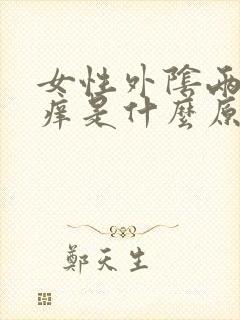 女性外陰兩
癢是什麼原
鄭天生